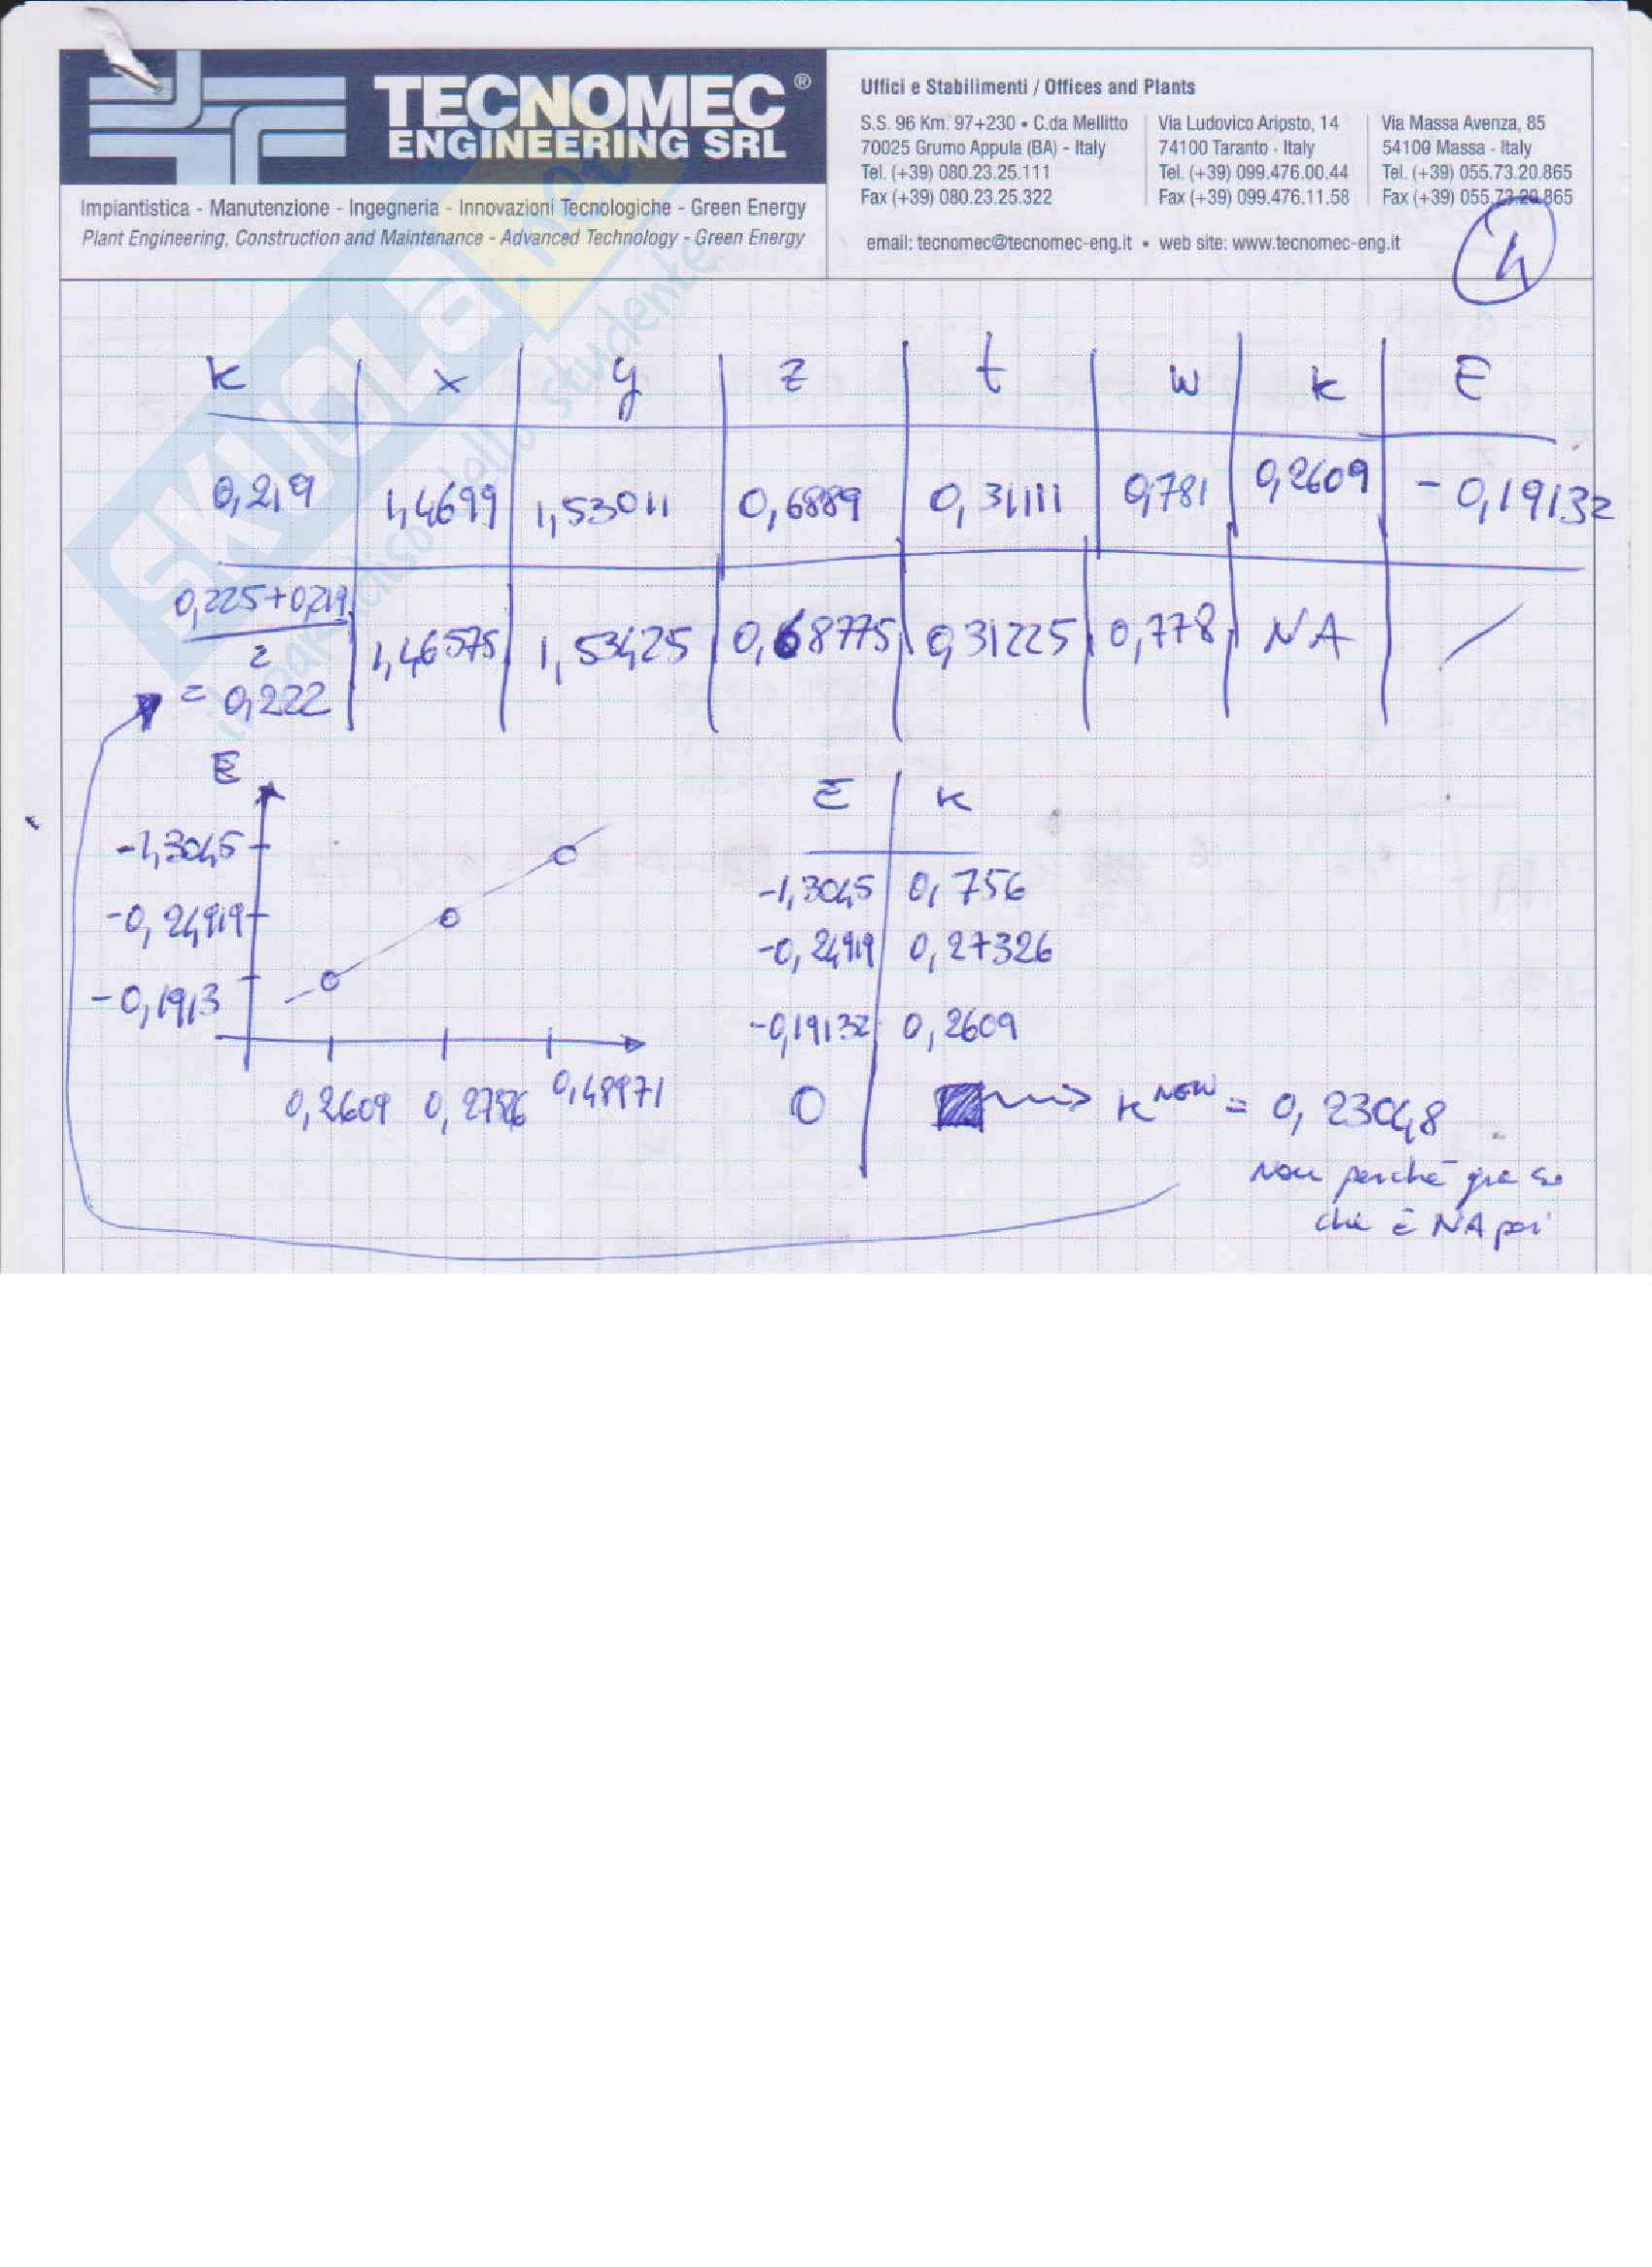 TECNOMEC®
ENGINEERING SRL
Impiantistica - Manutenzione - Ingegneria - Innovazioni Tecnologiche - Green Energy
Plant Engineering, Construction and Maintenance - Advanced Technology - Green Energy
Uffici e Stabilimenti / Offices and Plants
S.S. 96 Km. 97+230 • C.da Mellitto
70025 Grumo Appula (BA) - Italy
Tel. (+39) 080.23.25.111
Fax (+39) 080.23.25.322
Via Ludovico Ariosto, 14
74100 Taranto - Italy
Tel. (+39) 099.476.00.44
Fax (+39) 099.476.11.58
Via Massa Avenza, 85
54100 Massa - Italy
Tel. (+39) 055.73.20.865
Fax (+39) 055.73.20.865
email: tecnomec@tecnomec-eng.it • web site: www.tecnomec-eng.it
4
SKUOLA.net
il paradiso dello studente
k x y z t w k E
0,219 1,4699 1,53011 0,6889 0,31111 0,781 0,2609 -0,19132
0,225+0,219
2
= 0,222 1,46575 1,53425 0,68775 0,31225 0,778 NA /
E
-1,3045
-0,2499
-0,1913
0,2609 0,2786 0,48971
E k
-1,3045 0,756
-0,2499 0,27326
-0,19132 0,2609
0 k NEW = 0,23048
non perché già so
che è NA poi